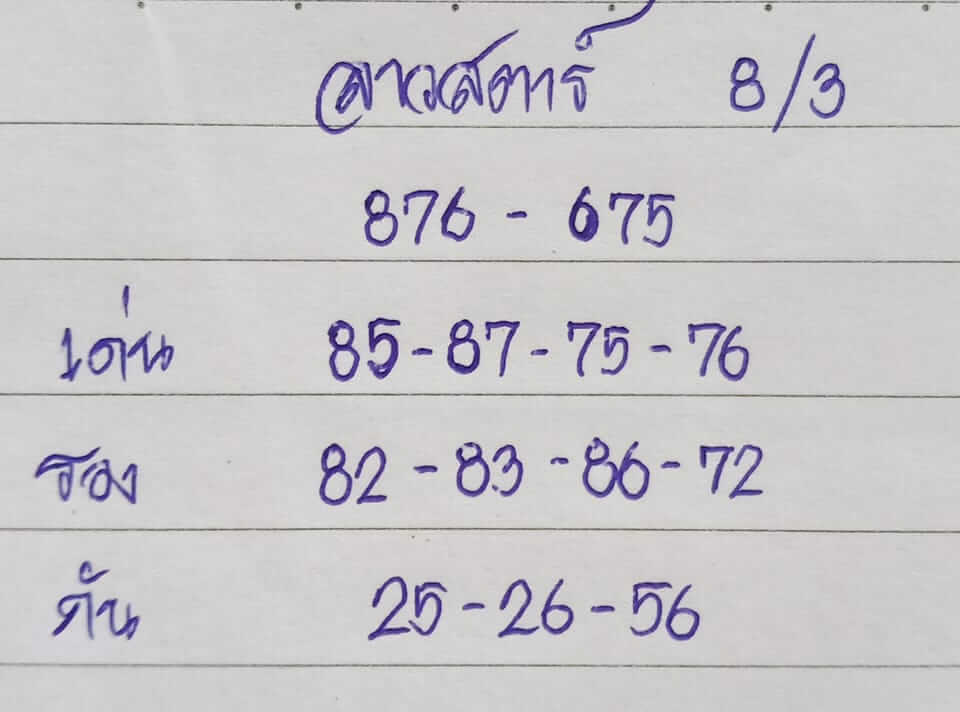 ลาวสตาร์ 8/3
876 - 675
เด่น 85-87-75-76
รอง 82-83-86-72
กัน 25-26-56